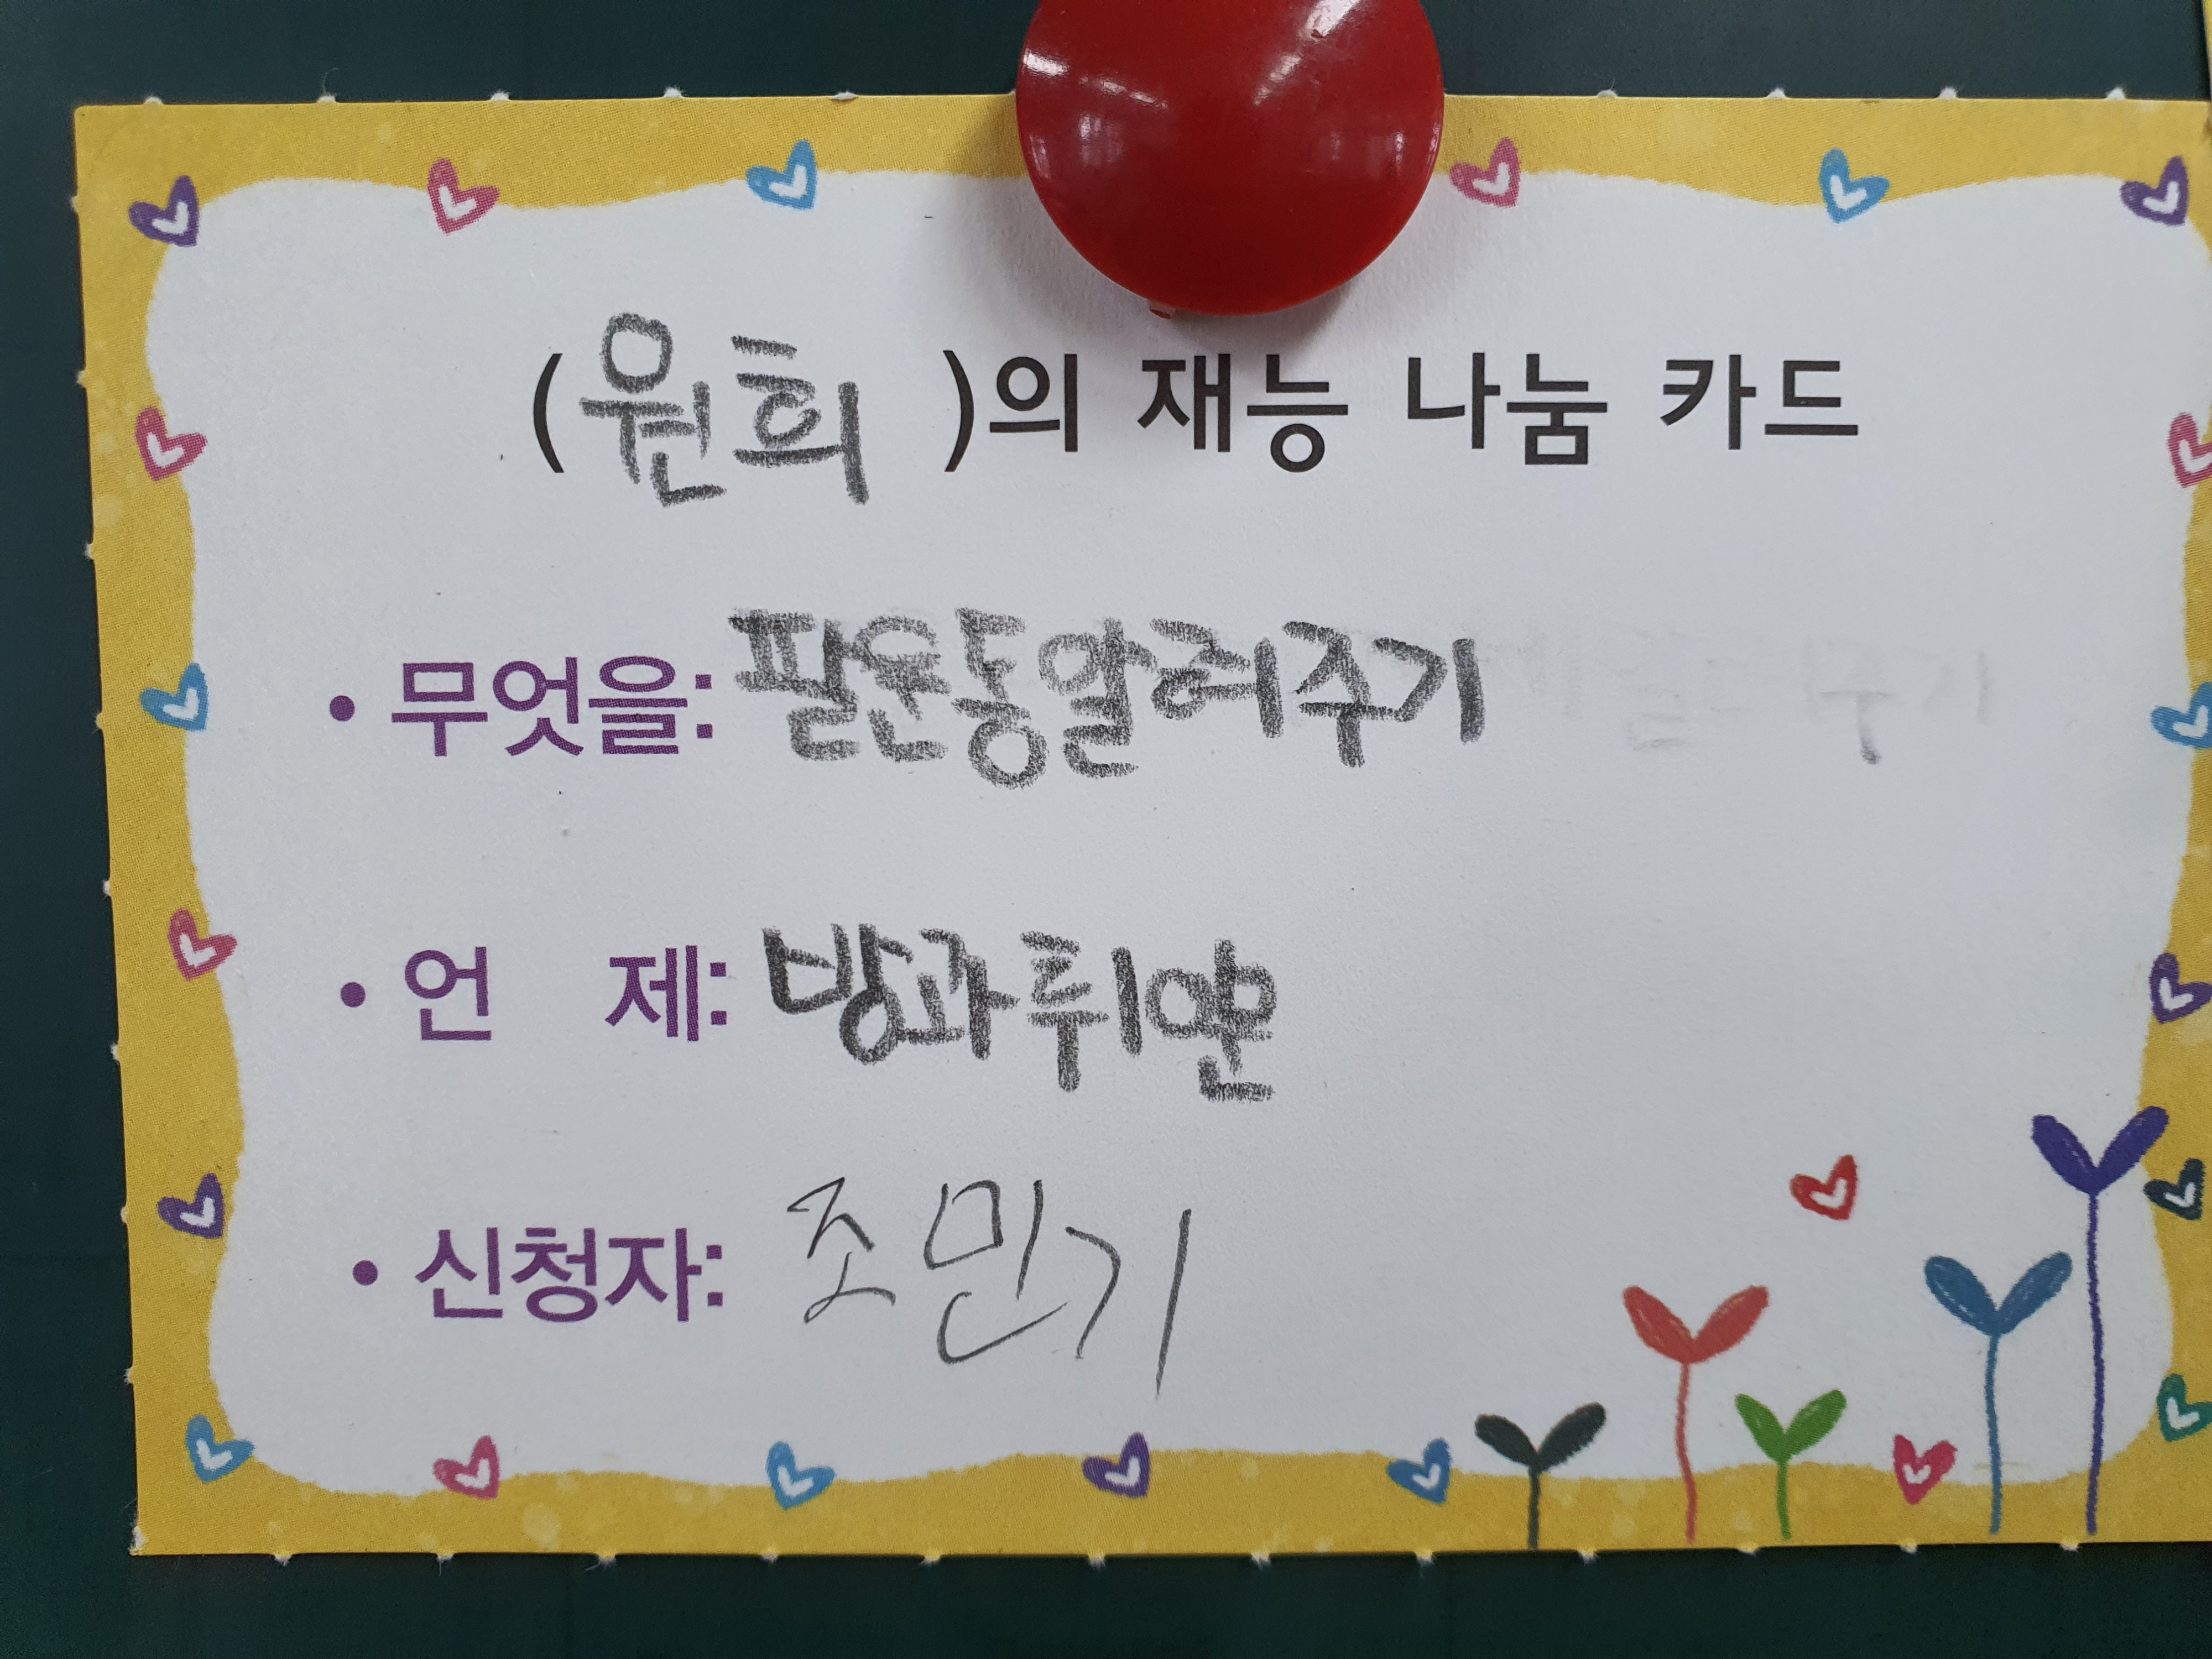 (원희 )의 재능 나눔 카드
• 무엇을: 팔운동알려주기
• 언 제: 방과후
• 신청자: 조민기